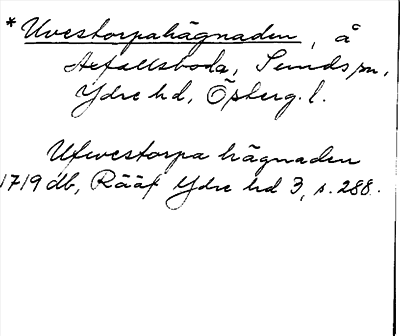 * Uvestorpahägnaden, å
Axfallsboda, Sunds sn,
Ydre hd, Östergl.
Ufwestorpa hägnaden
1719 db, Rääf Ydre hd 3, s. 288.